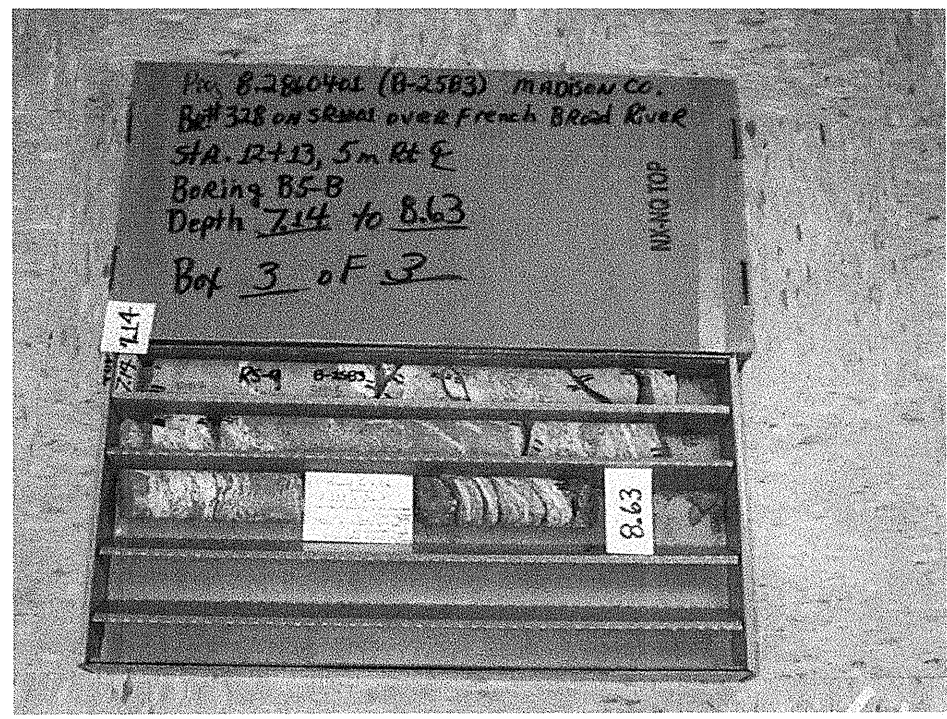 Proj 8.2860401 (B-2583) MADISON CO.
Br#328 ON SR1001 over French BRoad River
StA. 12+13, 5m Rt ℄
BoRing B5-B
Depth 7.14 to 8.63
Box 3 oF 3
NX-NQ TOP
7.14
7.14
RS-9 B-2583
8.63